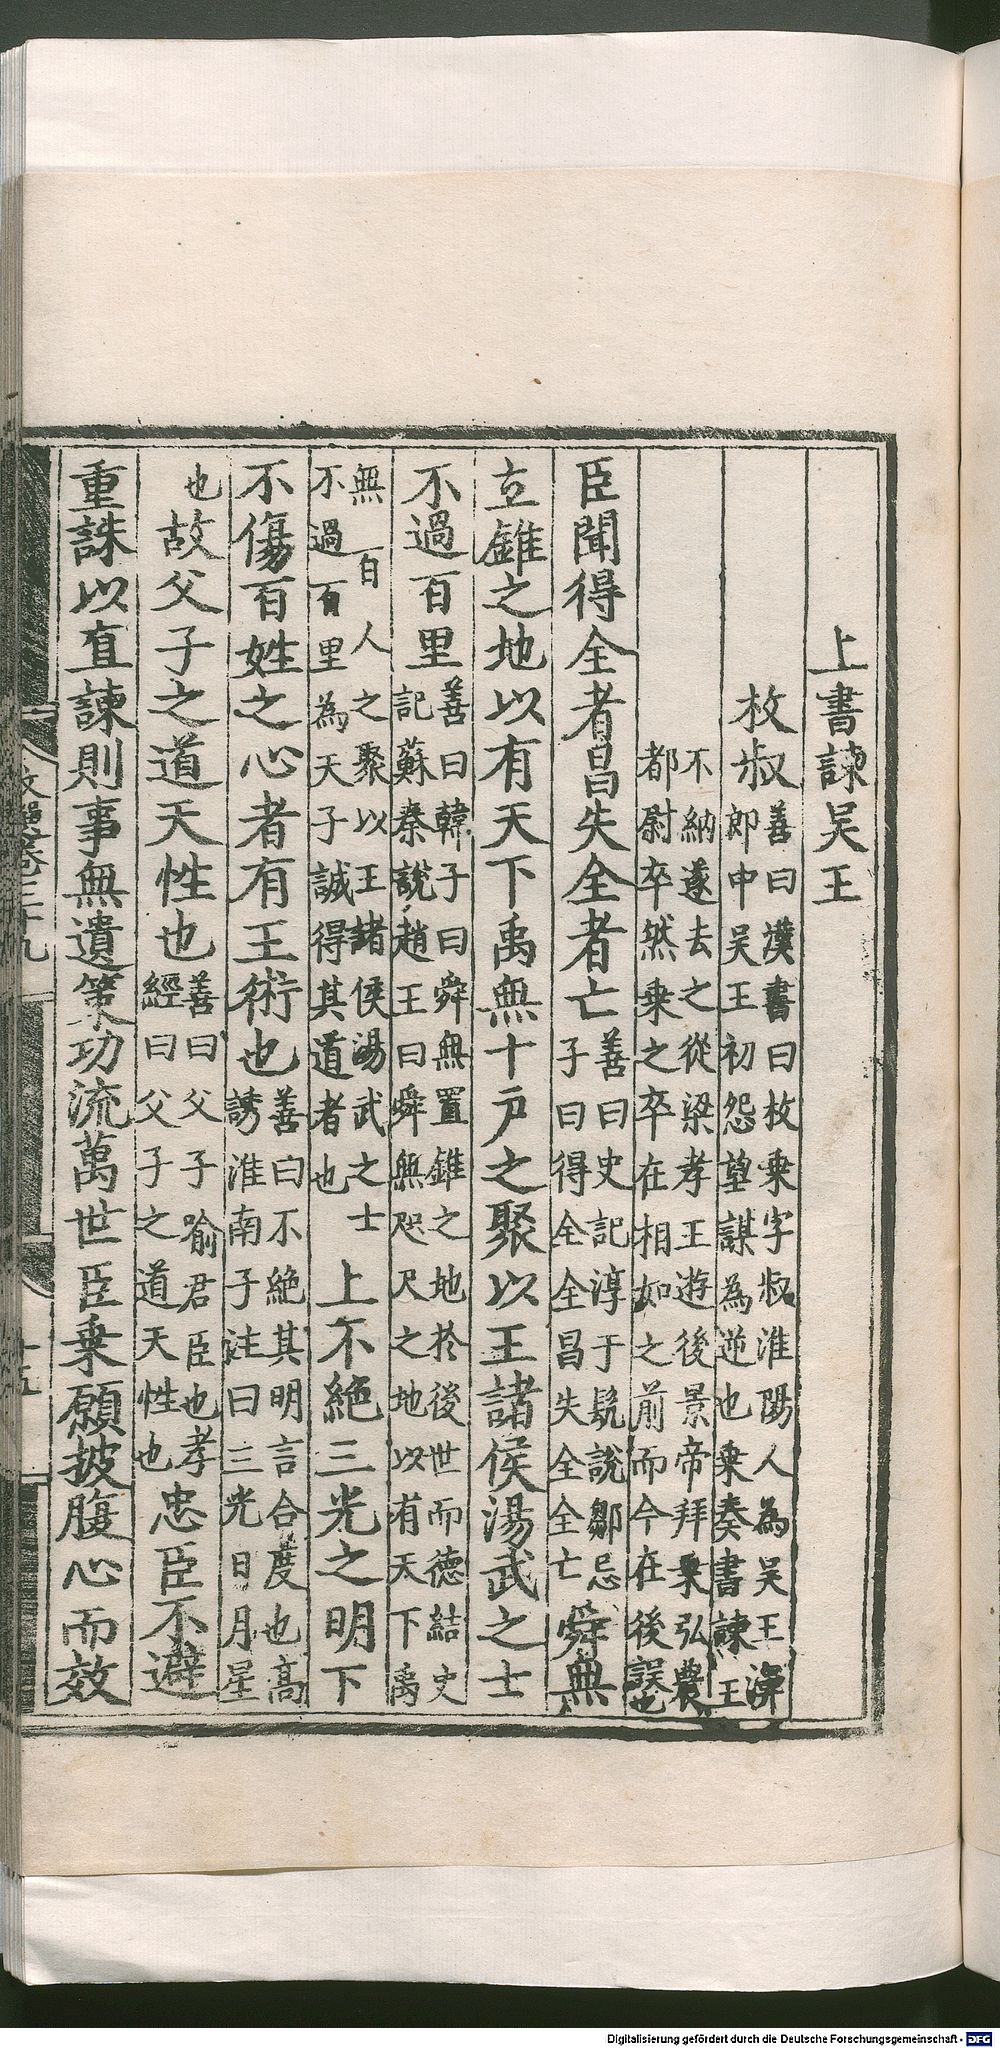 上書諫吳王
枚叔善曰漢書曰枚乘字叔淮陽人為吳王濞
郎中吳王初怨望謀為逆也乘奏書諫王
不納遂去之從梁孝王遊後景帝拜乘弘農
都尉卒然乘之卒在相如之前而今在後誤也
臣聞得全者昌失全者亡善曰史記淳于髡說鄒忌
子曰得全全昌失全全亡舜無
立錐之地以有天下禹無十戶之聚以王諸侯湯武之士
不過百里善曰韓子曰舜無置錐之地於後世而德結史
記蘇秦說趙王曰舜無咫尺之地以有天下禹
無百人之聚以王諸侯湯武之士
不過百里為天子誠得其道者也上不絕三光之明下
不傷百姓之心者有王術也善曰不絕其明言合度也高
誘淮南子注曰三光日月星
也故父子之道天性也善曰父子喻君臣也孝
經曰父子之道天性也忠臣不避
重誅以直諫則事無遺策功流萬世臣乘願披腹心而效
文選卷三十九
十五
Digitalisierung gefördert durch die Deutsche Forschungsgemeinschaft - DFG